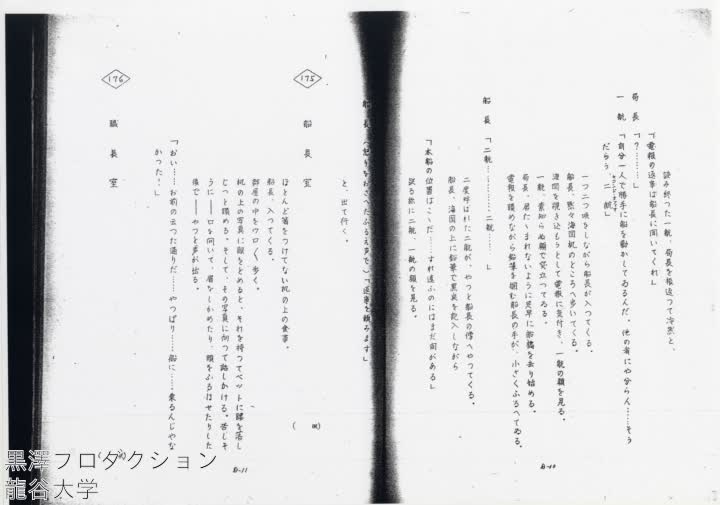 読み終った一航、局長を振返って冷然と、
「電報の返事は船長に聞いてくれ」
局長「?………」
一航「自分一人で勝手に船を動かしてゐるんだ。他の者にや分らん……そう
だらう、二航」
一つ二つ咳をしながら船長が入つてくる。
船長、黙々海図机のところへ歩いてくる。
海図を覗き込もうとして電報に気付き、一航の顔を見る。
一航、素知らぬ顔で突立つてゐる。
局長、居たゝまれないように足早に船橋を去り始める。
電報を眺めながら鉛筆を掴む船長の手が、小さくふるへてゐる。
船長「二航……………二航……」
二度呼ばれた二航が、やつと船長の傍へやつてくる。
船長、海図の上に鉛筆で黒点を記入しながら
「本船の位置はこゝだ……すれ違ふのにはまだ間がある」
訝る様に二航、一航の顔を見る。
B-10
船長(怒りをおさへたふるえ声で)「返事を頼みます」
と、出て行く。
175
船長室
ほとんど箸をつけてない机の上の食事。
船長、入つてくる。
部屋の中をウロ〱歩く。
机の上の写真に眼をとめると、それを持つてベツトに腰を落し
じつと眺める。そして、その写真に向つて話しかける。苦しそ
うに――口を開いて、眉をしかめたり、頭をふるはせたりした
後で――やつと声が出る。
「おい……お前の云つた通りだ……やつぱり……船に……乗るんじやな
かつた!」
176
職長室
B-11
黒澤プロダクション
龍谷大学